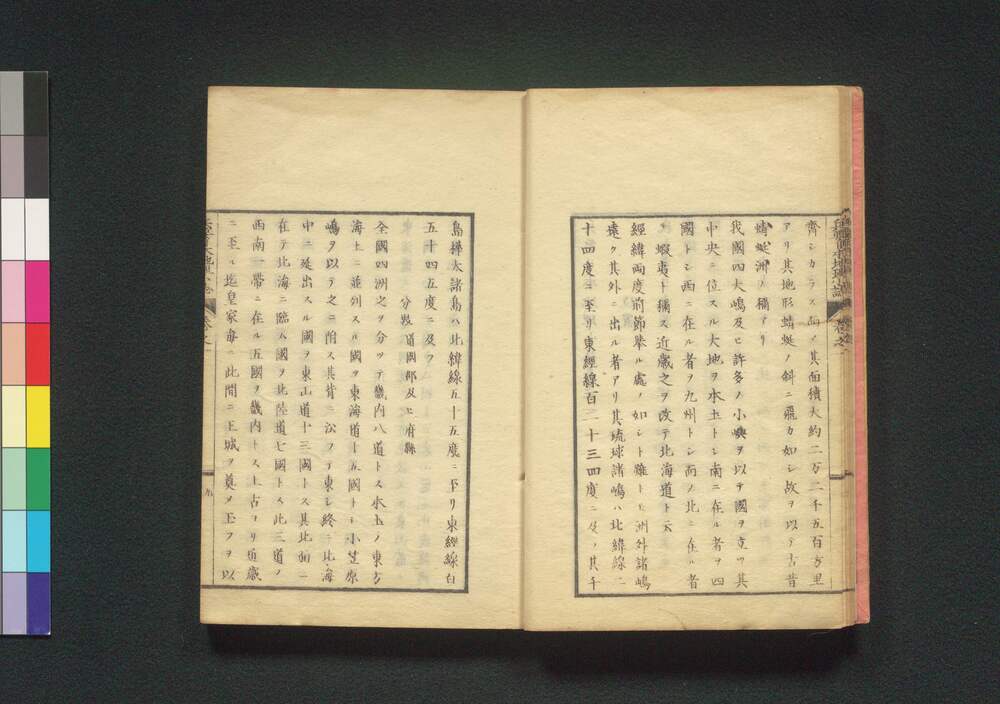 齊シカラス而ノ其面積大約二万二千五百方里
アリ其地形蜻蜓ノ斜ニ飛カ如シ故ヲ以テ古昔
蜻蜓洲ノ稱アリ
我國四大嶋及ヒ許多ノ小嶼ヲ以テ國ヲ立ツ其
中央ニ位スル大地ヲ本土トシ南ニ在ル者ヲ四
國トシ西ニ在ル者ヲ九州トシ而ノ北ニ在ル者
ヲ蝦夷ト稱ス近歳之ヲ改テ北海道ト云
經緯兩度前節擧ル處ノ如シト雖トモ洲外諸嶋
遠ク其外ニ出ル者アリ其琉球諸嶋ハ北緯線二
十四度ニ至リ東經線百二十三四度ニ及ノ其千
島樺太諸島ハ北緯線五十五度ニ至リ東經線百
五十四五度ニ及フ
分畋 道國郡及ヒ府縣
全國四洲之ヲ分ツテ畿内八道トス本土ノ東方
海上ニ並列スル國ヲ東海道十五國トシ小笠原
嶋ヲ以テ之ニ附ス其背ニ沿フテ東シ終ニ北海
中ニ延出スル國ヲ東山道十三國トス其北面ニ
在テ北海ニ臨ム國ヲ北陸道七國トス此三道ノ
西南一帶ニ在ル五國ヲ畿内トス上古ヨリ
ニ至ル迄皇家毎ニ此間ニ王城ヲ奠メ玉フヲ以
卷之一
九